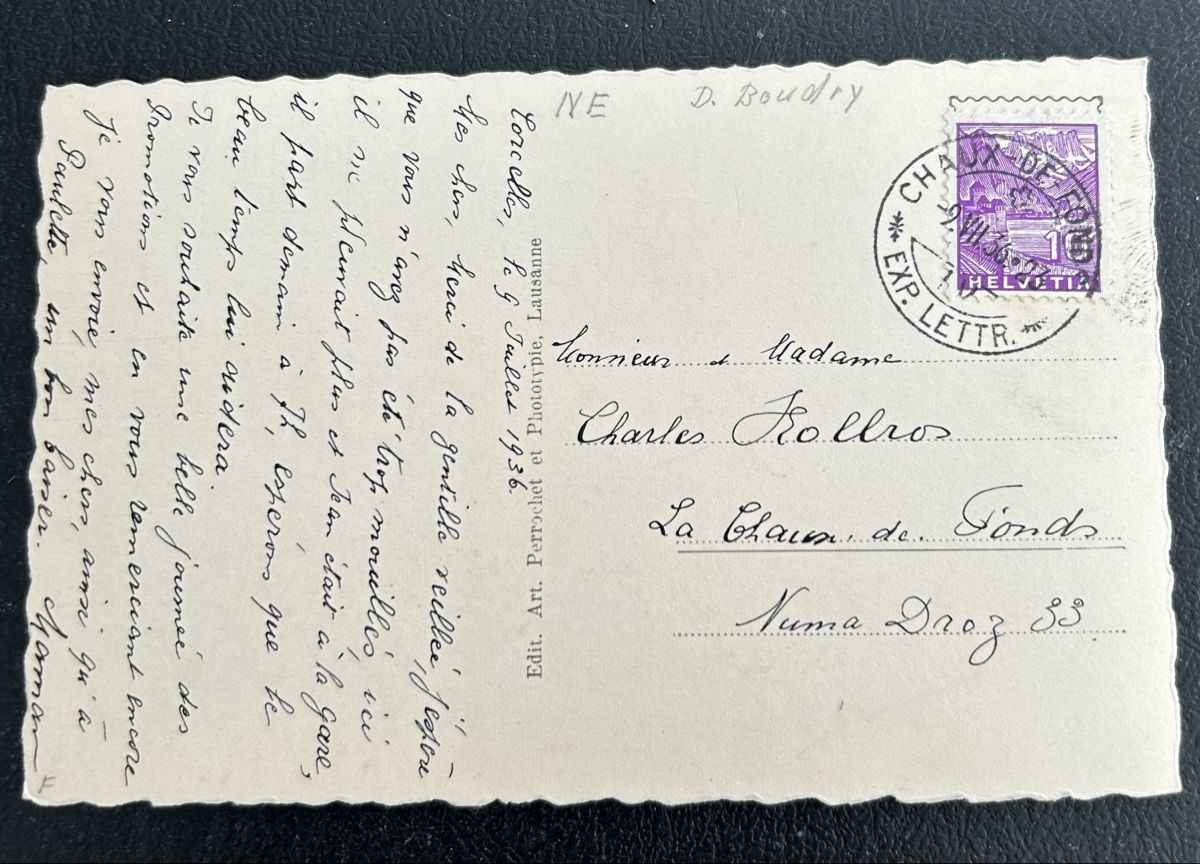 NE
D. Boudry
CHAUX-DE-FONDS
9.VII.36.23
EXP. LETTR.
10
HELVETIA
Monsieur et Madame
Charles Kollros
La Chaux. de. Fonds
Numa Droz 33
Edit. Art. Perrochet et Phototypie, Lausanne
Corcelles, le 9 Juillet 1936.
Mes chers, Merci de la gentille veillée, j'espère
que vous n'avez pas été trop mouillés, ici
il ne pleuvait plus et Jean était à la gare,
il part demain à Th, espérons que le
beau temps lui aidera.
Je vous souhaite une belle journée des
Promotions et en vous remerciant encore
je vous envoie, mes chers, ainsi qu'à
Paulette, un bon baiser. Maman
F